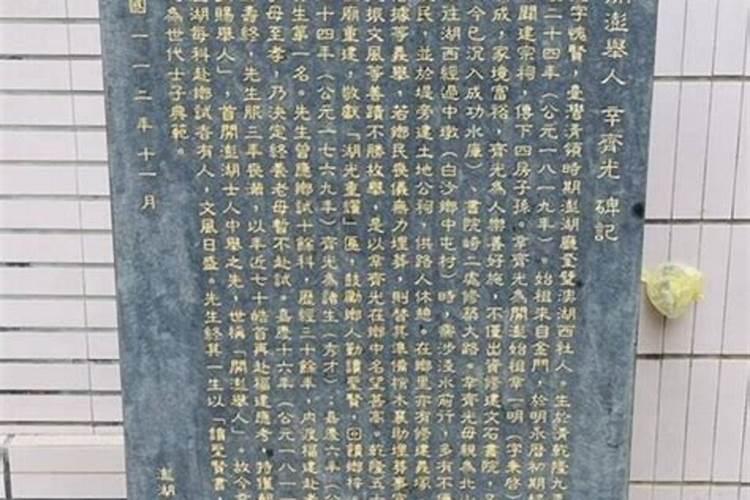 開澎舉人 辛齊光 碑記
字愧賢,臺灣清領時期澎湖廳奎璧澳湖西社人。生於清乾隆九年
二十四年(公元一八一九年)。始祖來自金門,於明永曆初期
闢建宗祠,傳下四房子孫。辛齊光為開澎始祖辛一明(字秉
成,家境富裕,齊光為人樂善好施,不僅出資修建文石書院,
今已沉入成功水庫)、書院崎二處修築大路。辛齊光母親為北山
往湖西經過中墩(白沙鄉中屯村)時,需涉淺水前行,多有不便
民,並於堤旁建土地公祠,供路人休憩。在鄉里亦有修建義塚
據等義舉,若鄉民喪儀無力埋葬,則替其準備棺木襄助埋葬事宜
振文風等善蹟不勝枚舉,是以辛齊光在鄉中名望甚高。乾隆五十
廟重建,敬獻「湖光重耀」匾,鼓勵鄉人勤讀聖賢,回饋鄉梓。
十四年(公元一七六九年)齊光為諸生(秀才),嘉慶六年(公
生第一名。先生曾應鄉試十餘科,歷經三十餘年,內渡福建赴考
母至孝,乃決定終養老母暫不赴試。嘉慶十六年(公元一八一
善終,先生服三年喪滿,以年近七十皓首再赴福建應考,特僅
賜舉人」,首開澎湖士人中舉之先,世稱「開澎舉人」。故今
湖每科赴鄉試者有人,文風日盛。先生終其一生以「讀聖賢書,
為世代士子典範。
國一一二年十一月
澎湖